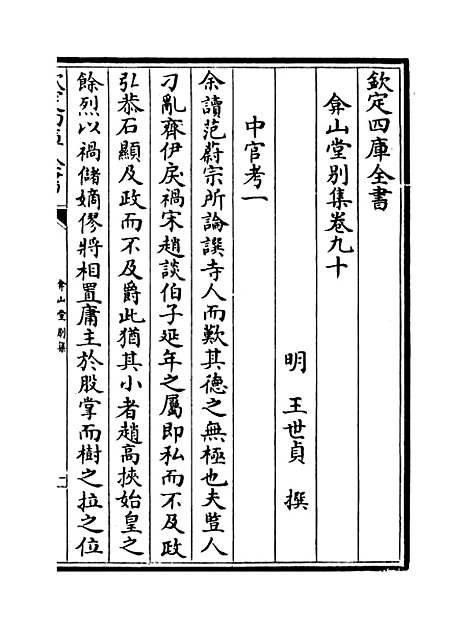 欽定四庫全書
弇山堂别集卷九十
明 王世貞 撰
中官考一
余讀范蔚宗所論譔寺人而歎其德之無極也夫豎人
刁亂齊伊戾禍宋趙談伯子延年之屬即私而不及政
弘恭石顯及政而不及爵此猶其小者趙高挾始皇之
餘烈以禍儲嫡僇將相置庸主於股掌而樹之拉之位
弇山堂别集